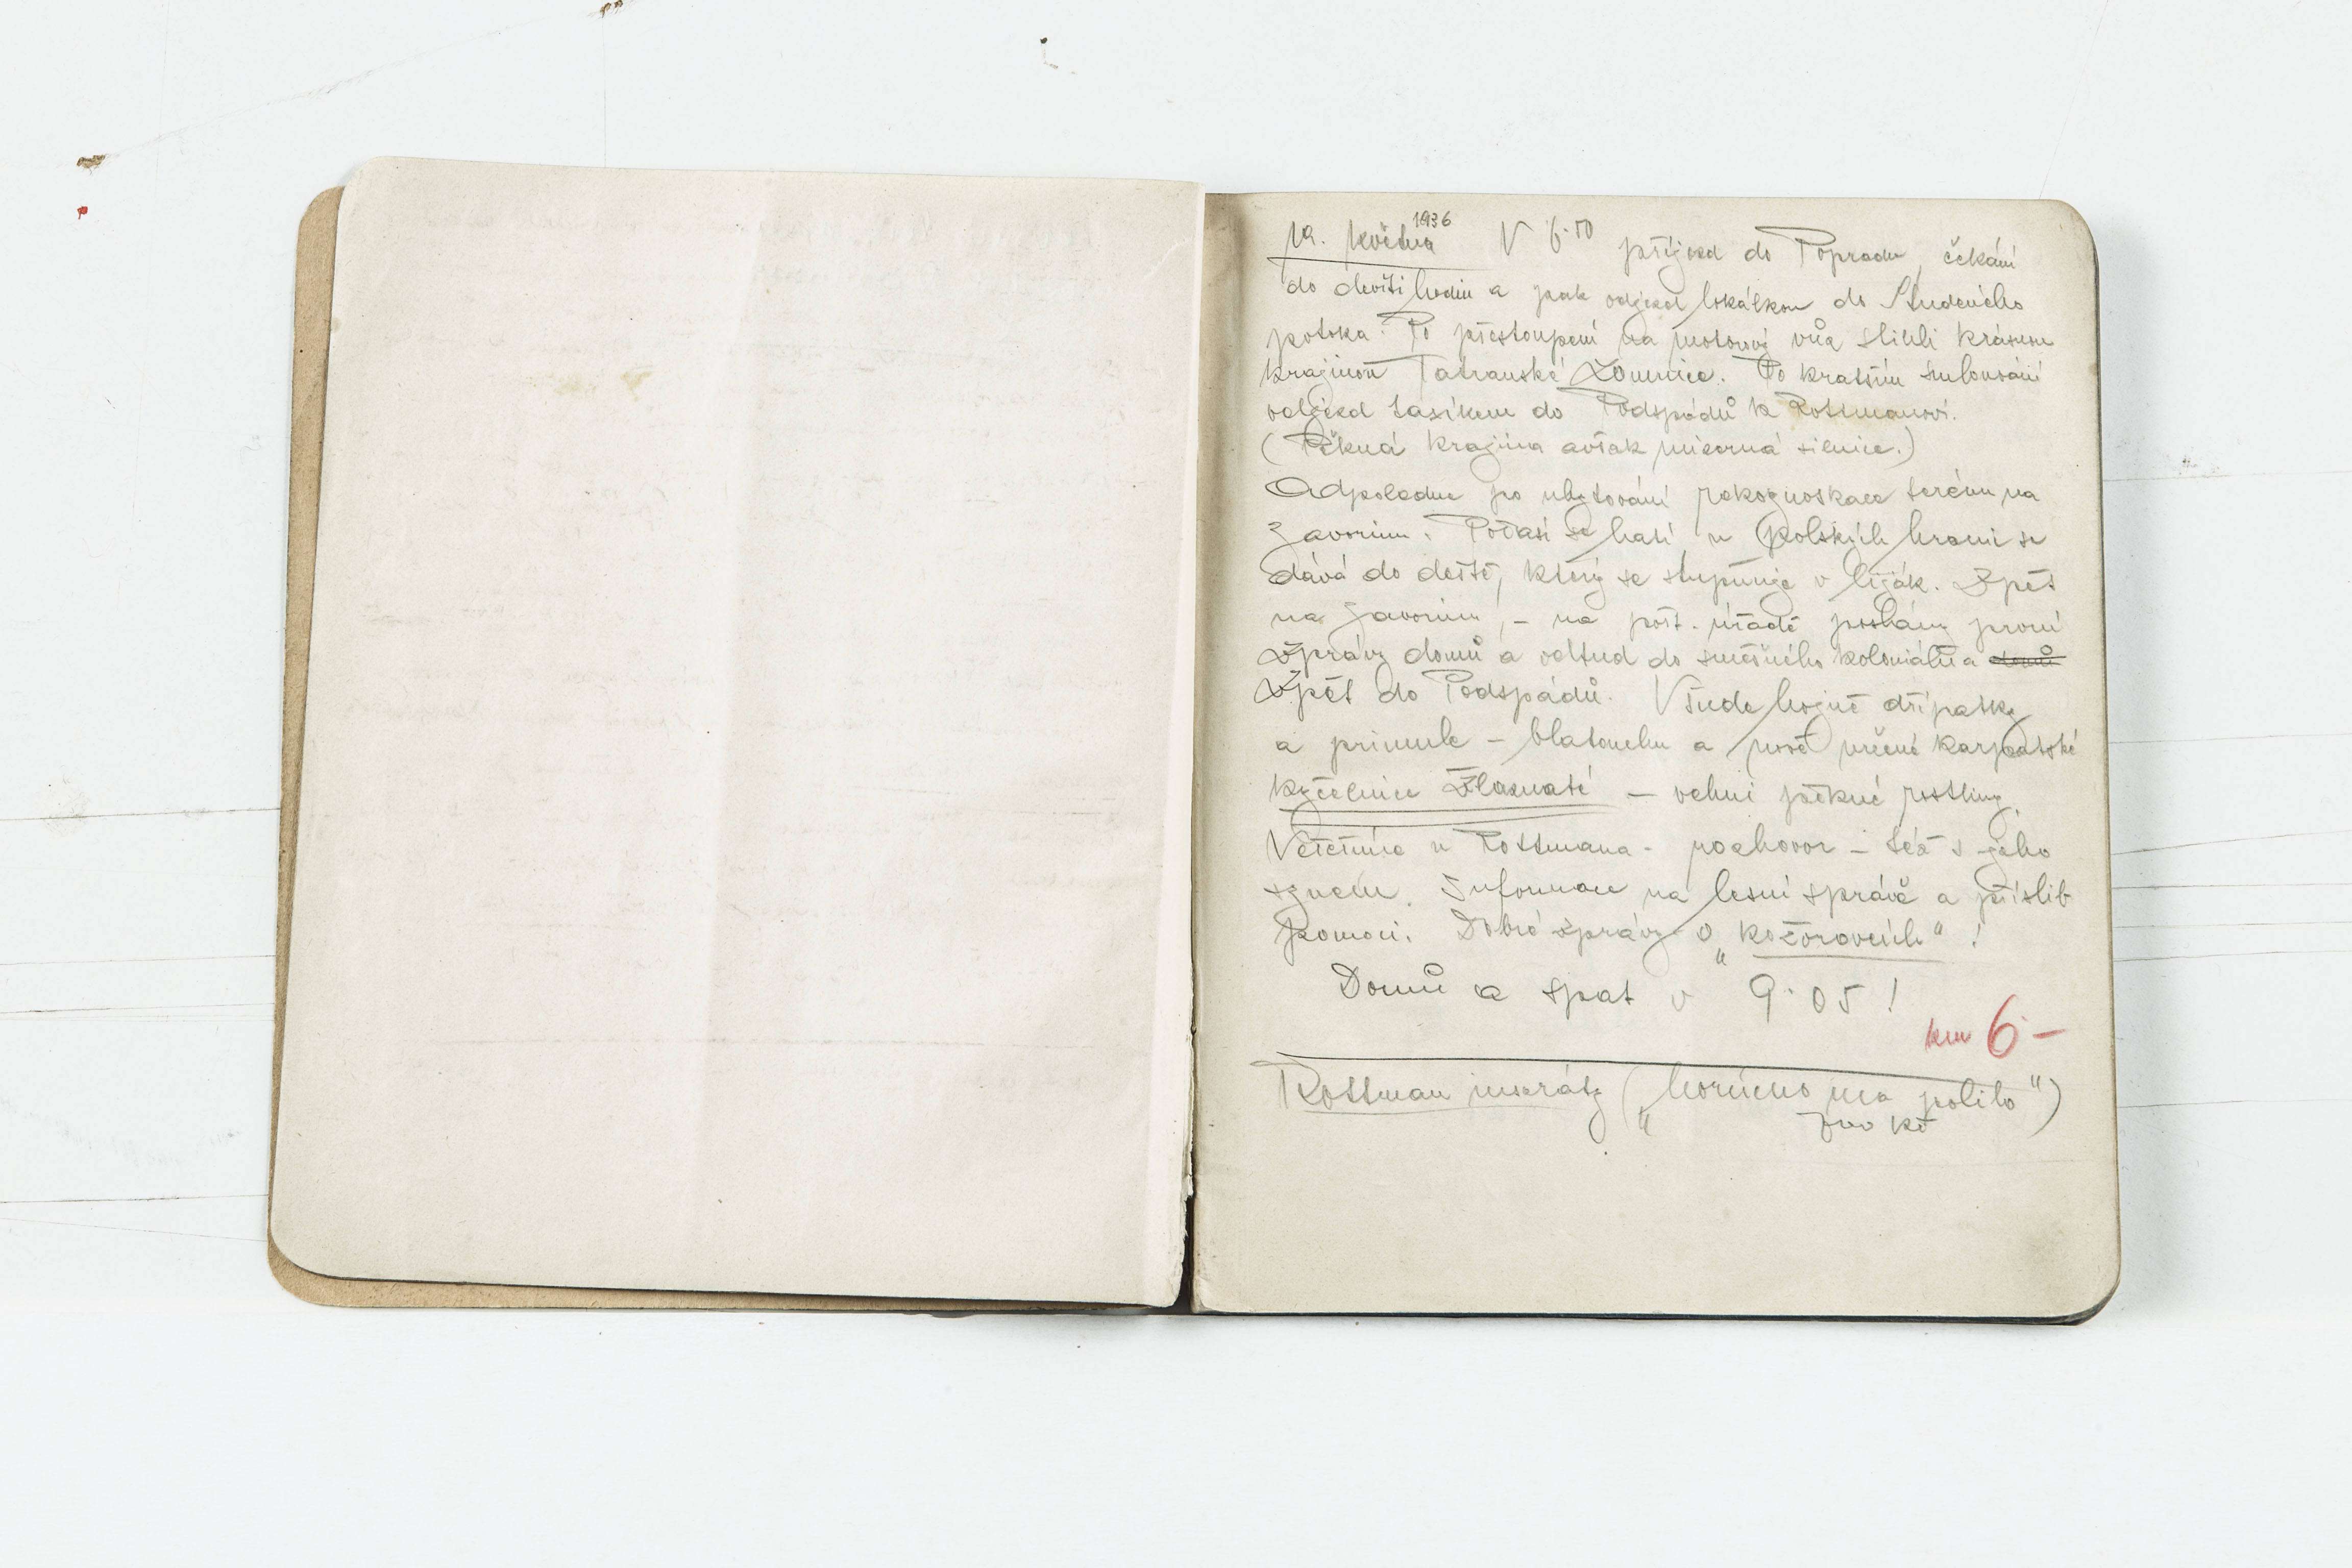 19. května 1936 V 6·50 příjezd do Popradu, čekání
do devíti hodin a pak odjezd lokálkou do Studeného
potoka. Po přestoupení na motorový vůz stihli krásnou
krajinou Tatranské Lomnice. Po kratším smlouvání
odjezd taxíkem do Podspádů k Rottmanovi.
(Pěkná krajina avšak mizerná silnice.)
Odpoledne po ubytování rekognoskace terénu na
Javorinu. Počasí se kazí, u polských hranic se
dává do deště, který se stupňuje v liják. Zpět
na Javorinu, – na pošt. úřadě poslány první
zprávy domů a odtud do směsného koloniálu a domů
zpět do Podspádů. Všude hojně dřípatky
a primule – blatouchu a nově určené karpatské
kyčelnice žlaznaté – velmi pěkné rostliny.
Večeříme u Rottmana – rozhovor – též s jeho
synem. Informace na lesní správě a příslib
pomoci. Dobré zprávy o „kozorovcích" !
Domů a spat v 9·05!
km 6·–
Rottman inzeráty („horúcno ma polilo")
Kč